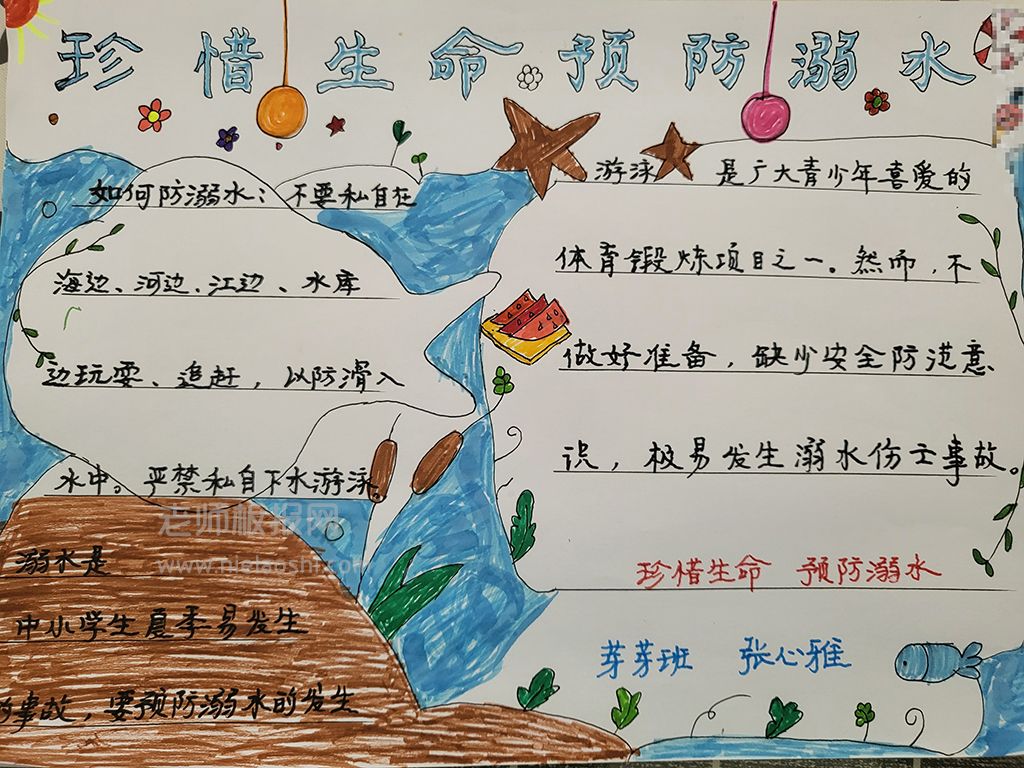 珍惜生命预防溺水
如何防溺水：不要私自在
海边、河边、江边、水库
边玩耍、追赶，以防滑入
水中。严禁私自下水游泳。
溺水是
中小学生夏季易发生
的事故，要预防溺水的发生
游泳 是广大青少年喜爱的
体育锻炼项目之一。然而，不
做好准备，缺少安全防范意
识，极易发生溺水伤亡事故。
珍惜生命 预防溺水
芽芽班 张心雅
老师板报网